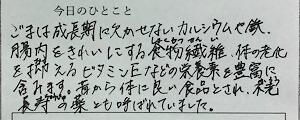 今日のひとこと
ごまは成長期に欠かせないカルシウムや鉄、
腸内をきれいにする食物繊維、体の老化
を抑えるビタミンEなどの栄養素を豊富に
含みます。昔から体に良い食品とされ、不老
長寿の薬とも呼ばれていました。